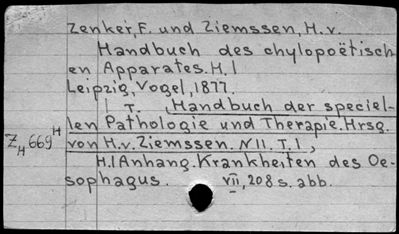 Zenker, F. und Ziemssen, H. v.
Handbuch des chylopoëtisch
en Apparates. H. 1
Leipzig, Vogel, 1877.
T. , Handbuch der speciel-
len Pathologie und Therapie. Hrsg.
Z H 669 H
von H. v. Ziemssen. N II. T. 1 ,
H. 1 Anhang. Krankheiten des Oe-
sophagus. VII, 208 s. abb.